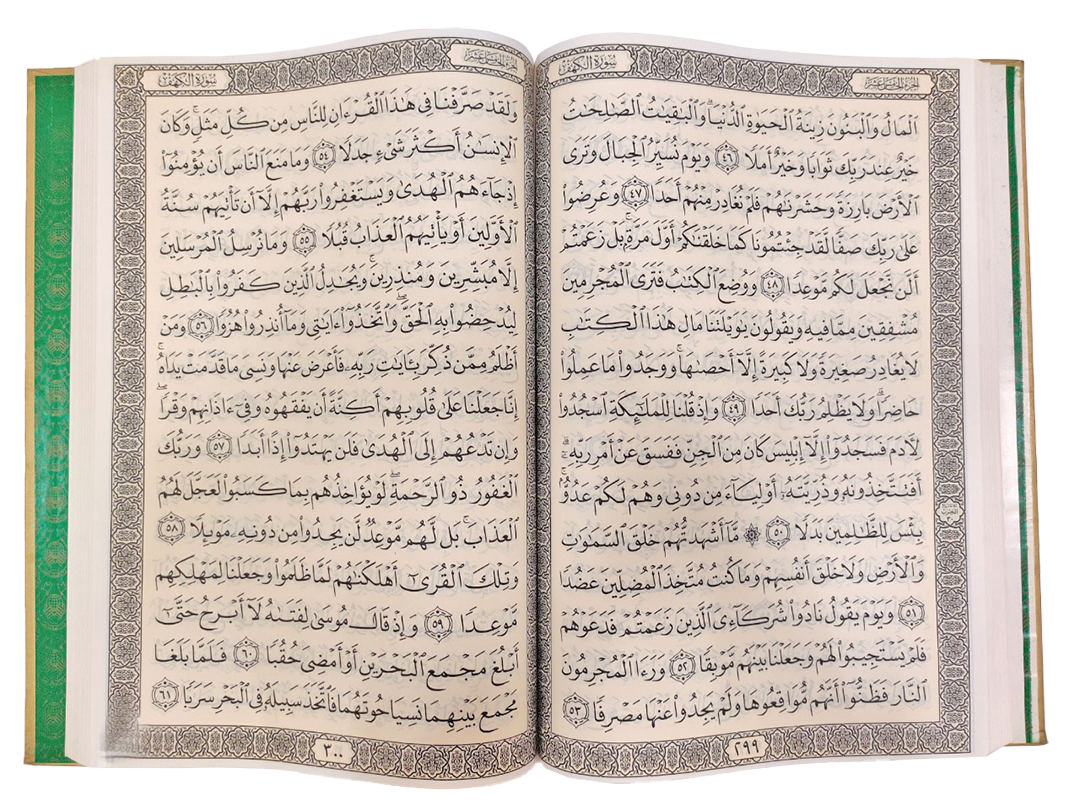 سورة الكهف
الجزء الخامس عشر
ٱلْمَالُ وَٱلْبَنُونَ زِينَةُ ٱلْحَيَوٰةِ ٱلدُّنْيَا ۖ وَٱلْبَٰقِيَٰتُ ٱلصَّٰلِحَٰتُ
خَيْرٌ عِندَ رَبِّكَ ثَوَابًا وَخَيْرٌ أَمَلًا ٤٦ وَيَوْمَ نُسَيِّرُ ٱلْجِبَالَ وَتَرَى
ٱلْأَرْضَ بَارِزَةً وَحَشَرْنَٰهُمْ فَلَمْ نُغَادِرْ مِنْهُمْ أَحَدًا ٤٧ وَعُرِضُوا۟
عَلَىٰ رَبِّكَ صَفًّا لَّقَدْ جِئْتُمُونَا كَمَا خَلَقْنَٰكُمْ أَوَّلَ مَرَّةٍۭ ۚ بَلْ زَعَمْتُمْ
أَلَّن نَّجْعَلَ لَكُم مَّوْعِدًا ٤٨ وَوُضِعَ ٱلْكِتَٰبُ فَتَرَى ٱلْمُجْرِمِينَ
مُشْفِقِينَ مِمَّا فِيهِ وَيَقُولُونَ يَٰوَيْلَتَنَا مَالِ هَٰذَا ٱلْكِتَٰبِ
لَا يُغَادِرُ صَغِيرَةً وَلَا كَبِيرَةً إِلَّآ أَحْصَىٰهَا ۚ وَوَجَدُوا۟ مَا عَمِلُوا۟
حَاضِرًا ۗ وَلَا يَظْلِمُ رَبُّكَ أَحَدًا ٤٩ وَإِذْ قُلْنَا لِلْمَلَٰٓئِكَةِ ٱسْجُدُوا۟
لِءَادَمَ فَسَجَدُوٓا۟ إِلَّآ إِبْلِيسَ كَانَ مِنَ ٱلْجِنِّ فَفَسَقَ عَنْ أَمْرِ رَبِّهِۦٓ ۗ
أَفَتَتَّخِذُونَهُۥ وَذُرِّيَّتَهُۥٓ أَوْلِيَآءَ مِن دُونِى وَهُمْ لَكُمْ عَدُوٌّۢ ۚ
بِئْسَ لِلظَّٰلِمِينَ بَدَلًا ٥٠ ۞ مَّآ أَشْهَدتُّهُمْ خَلْقَ ٱلسَّمَٰوَٰتِ
وَٱلْأَرْضِ وَلَا خَلْقَ أَنفُسِهِمْ وَمَا كُنتُ مُتَّخِذَ ٱلْمُضِلِّينَ عَضُدًا
٥١ وَيَوْمَ يَقُولُ نَادُوا۟ شُرَكَآءِىَ ٱلَّذِينَ زَعَمْتُمْ فَدَعَوْهُمْ
فَلَمْ يَسْتَجِيبُوا۟ لَهُمْ وَجَعَلْنَا بَيْنَهُم مَّوْبِقًا ٥٢ وَرَءَا ٱلْمُجْرِمُونَ
ٱلنَّارَ فَظَنُّوٓا۟ أَنَّهُم مُّوَاقِعُوهَا وَلَمْ يَجِدُوا۟ عَنْهَا مَصْرِفًا ٥٣
٢٩٩
سورة الكهف
الجزء الخامس عشر
وَلَقَدْ صَرَّفْنَا فِى هَٰذَا ٱلْقُرْءَانِ لِلنَّاسِ مِن كُلِّ مَثَلٍ ۚ وَكَانَ
ٱلْإِنسَٰنُ أَكْثَرَ شَىْءٍ جَدَلًا ٥٤ وَمَا مَنَعَ ٱلنَّاسَ أَن يُؤْمِنُوٓا۟
إِذْ جَآءَهُمُ ٱلْهُدَىٰ وَيَسْتَغْفِرُوا۟ رَبَّهُمْ إِلَّآ أَن تَأْتِيَهُمْ سُنَّةُ
ٱلْأَوَّلِينَ أَوْ يَأْتِيَهُمُ ٱلْعَذَابُ قُبُلًا ٥٥ وَمَا نُرْسِلُ ٱلْمُرْسَلِينَ
إِلَّا مُبَشِّرِينَ وَمُنذِرِينَ ۚ وَيُجَٰدِلُ ٱلَّذِينَ كَفَرُوا۟ بِٱلْبَٰطِلِ
لِيُدْحِضُوا۟ بِهِ ٱلْحَقَّ ۖ وَٱتَّخَذُوٓا۟ ءَايَٰتِى وَمَآ أُنذِرُوا۟ هُزُوًا ٥٦ وَمَنْ
أَظْلَمُ مِمَّن ذُكِّرَ بِـَٔايَٰتِ رَبِّهِۦ فَأَعْرَضَ عَنْهَا وَنَسِىَ مَا قَدَّمَتْ يَدَاهُ ۚ
إِنَّا جَعَلْنَا عَلَىٰ قُلُوبِهِمْ أَكِنَّةً أَن يَفْقَهُوهُ وَفِىٓ ءَاذَانِهِمْ وَقْرًا ۖ
وَإِن تَدْعُهُمْ إِلَى ٱلْهُدَىٰ فَلَن يَهْتَدُوٓا۟ إِذًا أَبَدًا ٥٧ وَرَبُّكَ
ٱلْغَفُورُ ذُو ٱلرَّحْمَةِ ۖ لَوْ يُؤَاخِذُهُم بِمَا كَسَبُوا۟ لَعَجَّلَ لَهُمُ
ٱلْعَذَابَ ۚ بَل لَّهُم مَّوْعِدٌ لَّن يَجِدُوا۟ مِن دُونِهِۦ مَوْئِلًا ٥٨
وَتِلْكَ ٱلْقُرَىٰٓ أَهْلَكْنَٰهُمْ لَمَّا ظَلَمُوا۟ وَجَعَلْنَا لِمَهْلِكِهِم
مَّوْعِدًا ٥٩ وَإِذْ قَالَ مُوسَىٰ لِفَتَىٰهُ لَآ أَبْرَحُ حَتَّىٰٓ
أَبْلُغَ مَجْمَعَ ٱلْبَحْرَيْنِ أَوْ أَمْضِىَ حُقُبًا ٦٠ فَلَمَّا بَلَغَا
مَجْمَعَ بَيْنِهِمَا نَسِيَا حُوتَهُمَا فَٱتَّخَذَ سَبِيلَهُۥ فِى ٱلْبَحْرِ سَرَبًا ٦١
٣٠٠